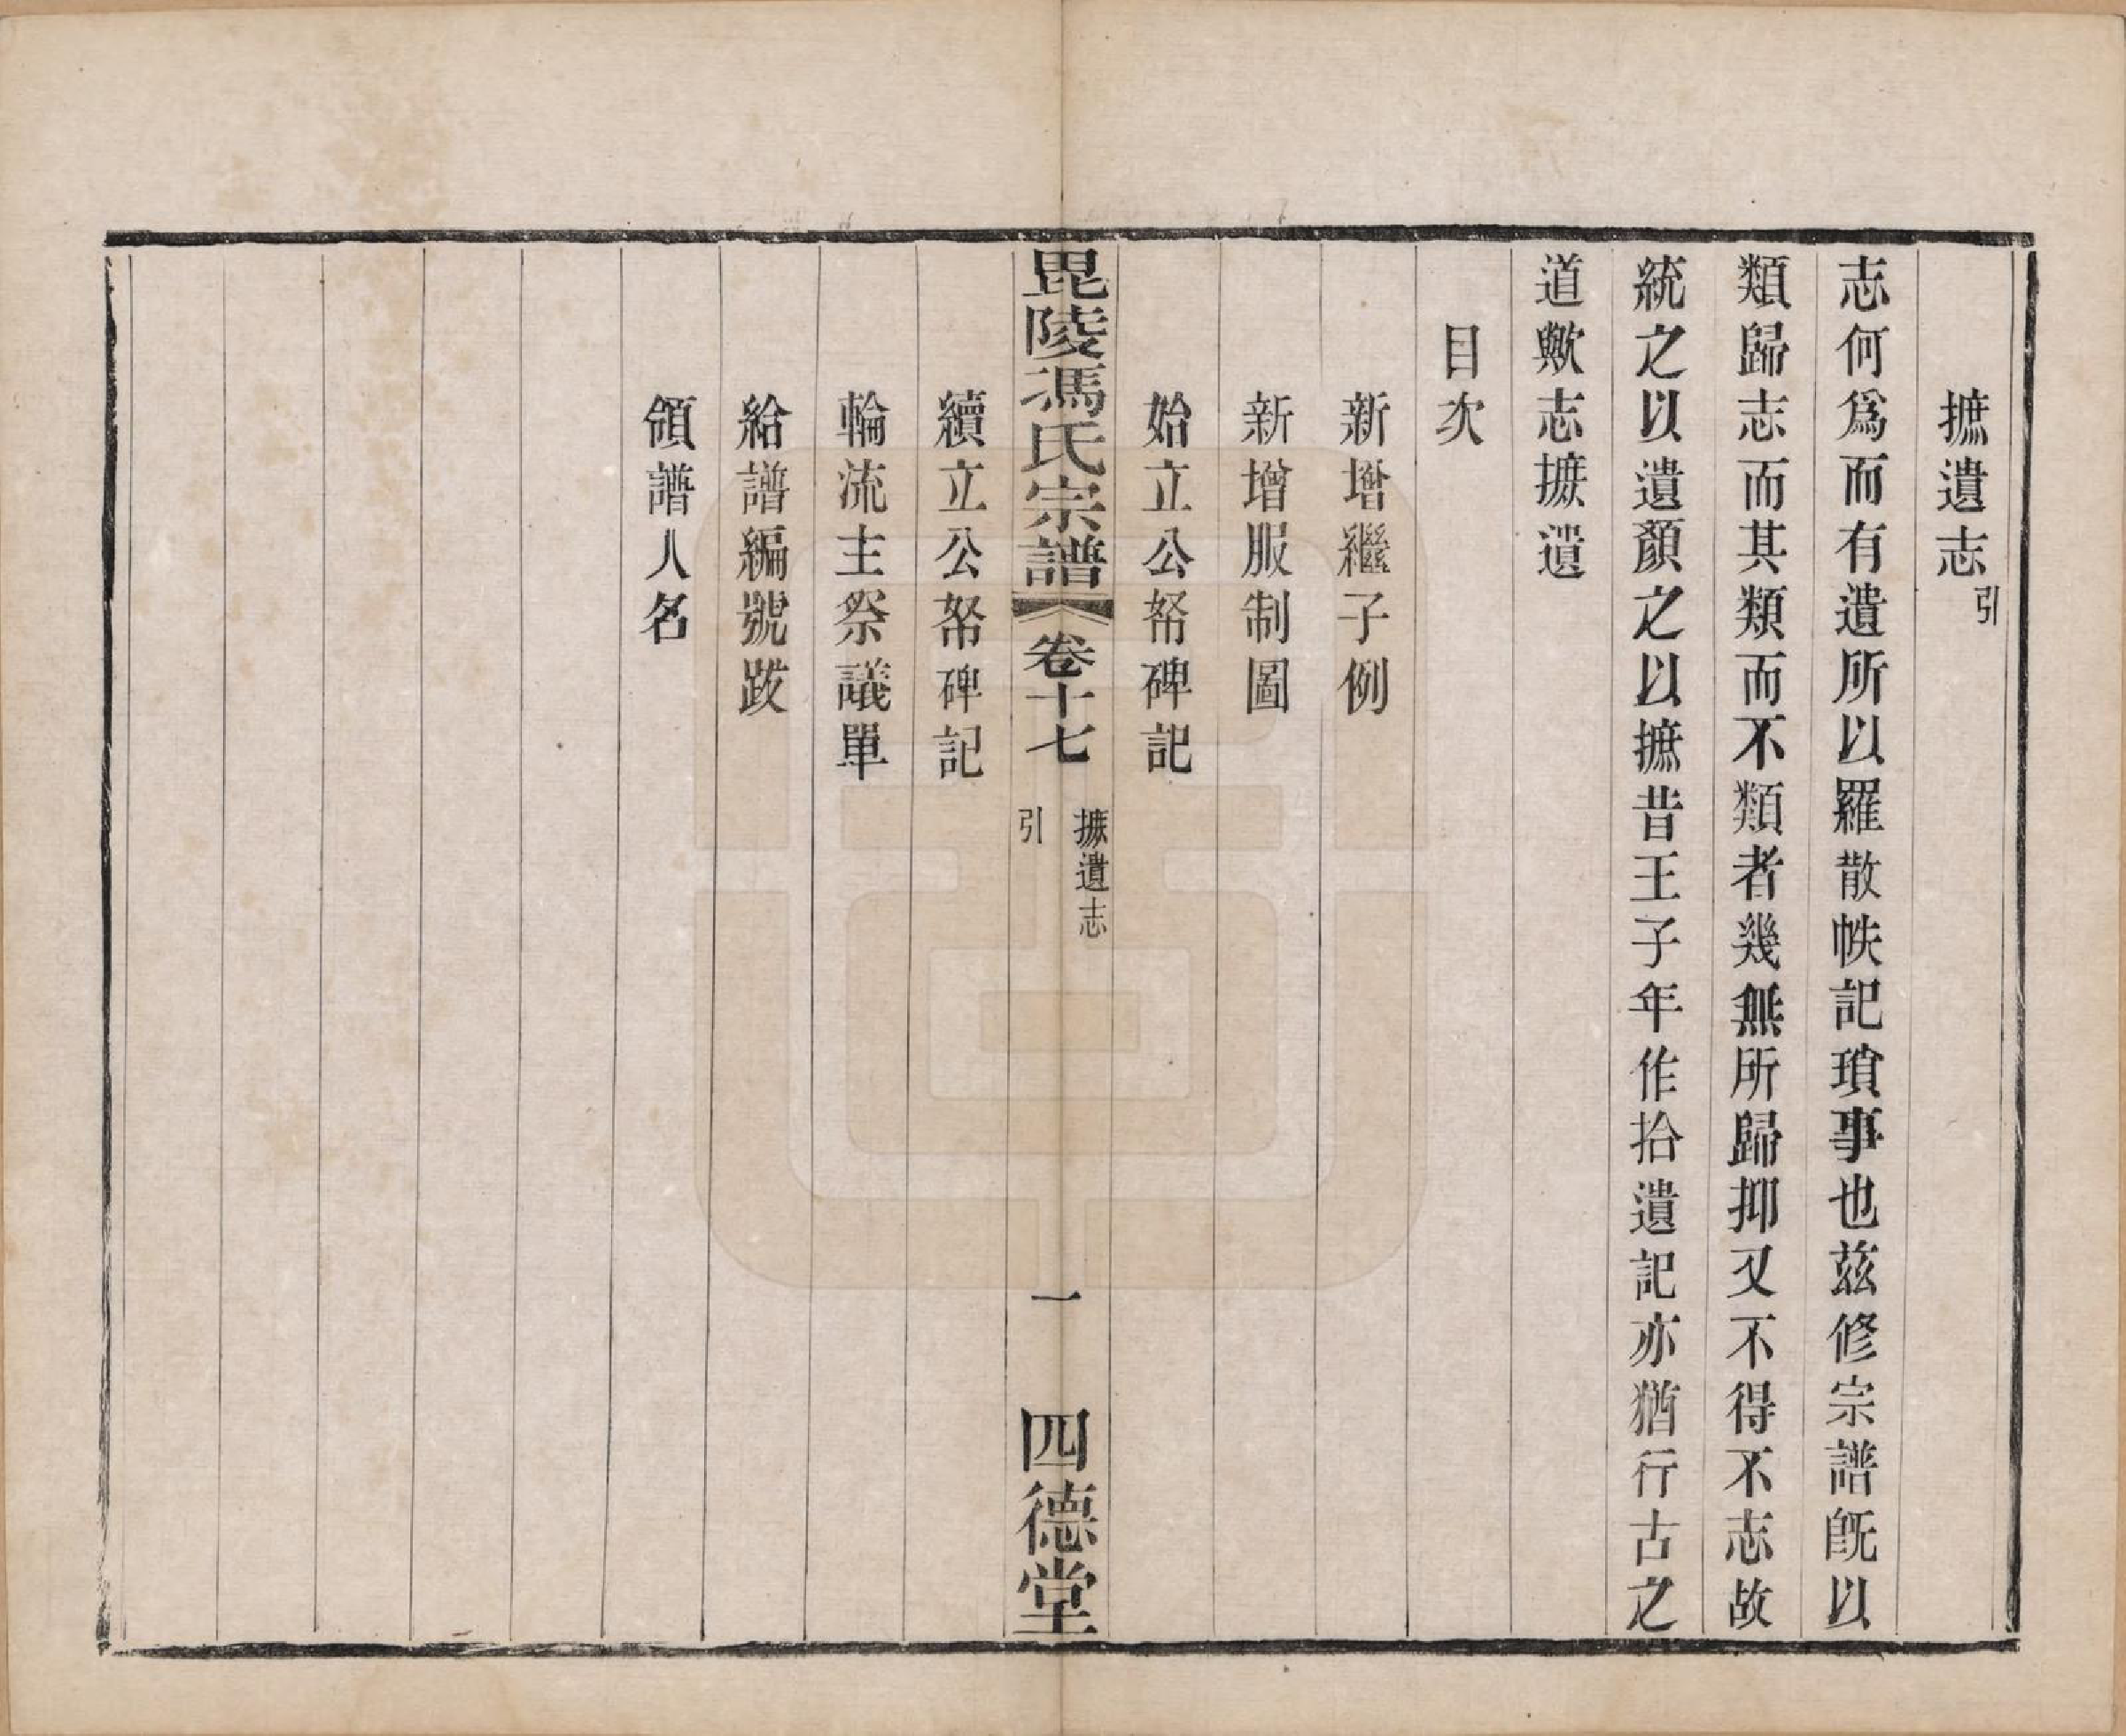 摭遺志引
志何爲而有遺所以羅散帙記瑣事也兹修宗譜旣以
類歸志而其類而不類者幾無所歸抑又不得不志故
統之以遺顏之以摭昔王子年作拾遺記亦猶行古之
道歟志摭遺
目次
新增繼子例
新增服制圖
始立公帑碑記
毘陵馮氏宗譜 卷十七 摭遺志引 一 四德堂
續立公帑碑記
輪流主祭議單
給譜編號跋
領譜人名